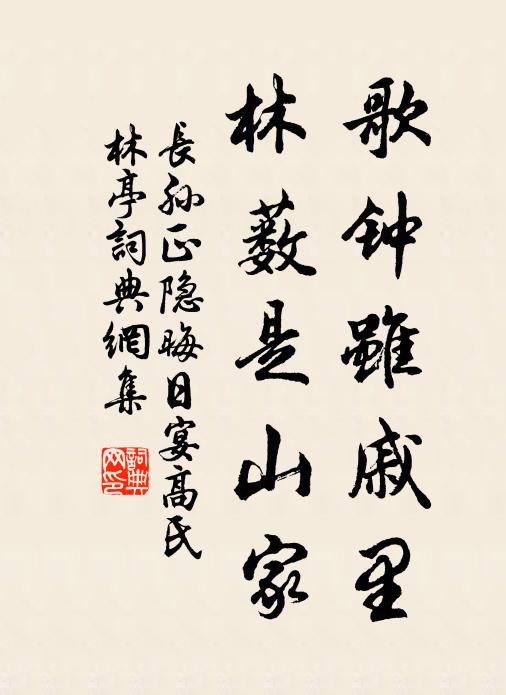 歌钟雖戚里
林薮是山家
長孙正隐晦日宴高氏
林亭詞典網集
詞典网印